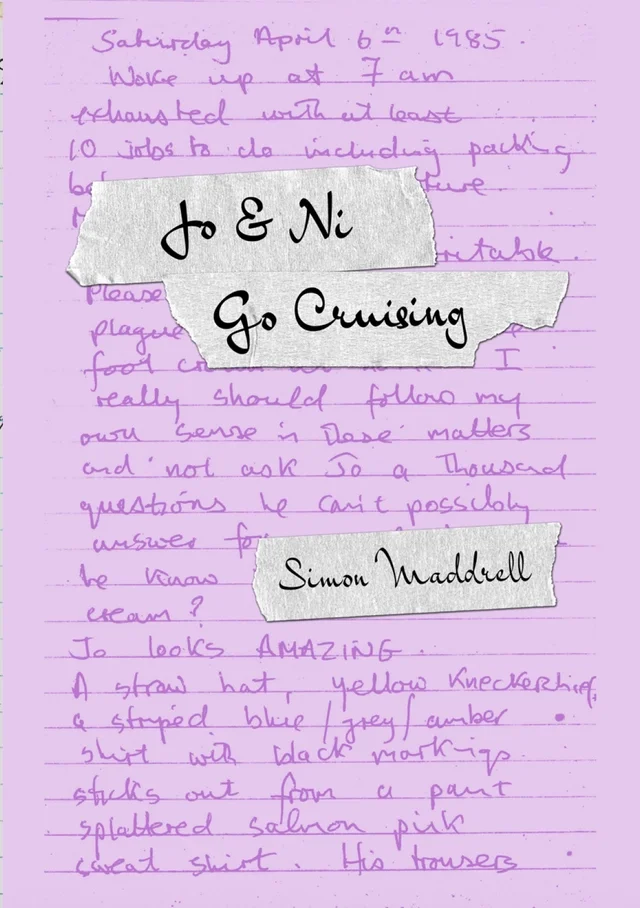 Saturday April 6th 1985.
Woke up at 7am
exhausted with at least
10 jobs to do including packing
Jo & Ni
Please
Go Cruising
plague
foot I
really should follow my
own 'sense in these' matters
and not ask Jo a Thousand
questions he can't possibly
answer
he know
Simon Maddrell
cream?
Jo looks AMAZING.
A straw hat, yellow Kneckerhief,
a striped blue/grey/amber
shirt with black markings
sticks out from a paint
splattered salmon pink
sweat shirt. His trousers